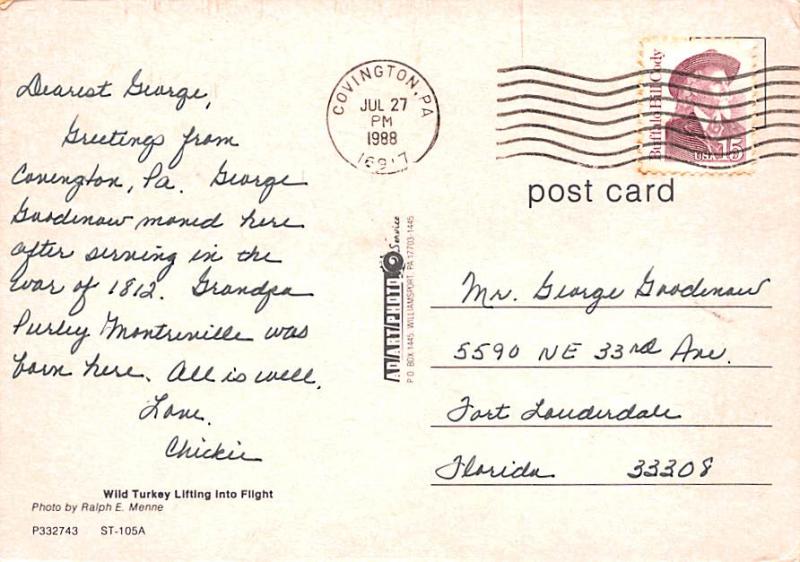 Dearest George,
Greetings from
Covington, Pa. George
Goodenow moved here
after serving in the
War of 1812. Grandpa
Purley Montreville was
born here. All is well.
Love,
Chickie
Wild Turkey Lifting Into Flight
Photo by Ralph E. Menne
P332743 ST-105A
AD/ART/PHOTO Service
P.O. BOX 1445 WILLIAMSPORT, PA 17703-1445
COVINGTON, PA
JUL 27
PM
1988
16917
Buffalo Bill Cody
USA 15
post card
Mr. George Goodenow
5590 NE 33rd Ave.
Fort Lauderdale
Florida 33308